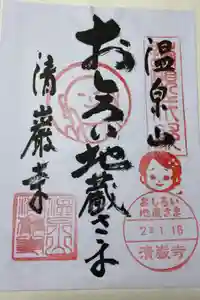 温泉山
おしろい地蔵さま
清巌寺
おしろい
地蔵さま
23.1.16
清巌寺